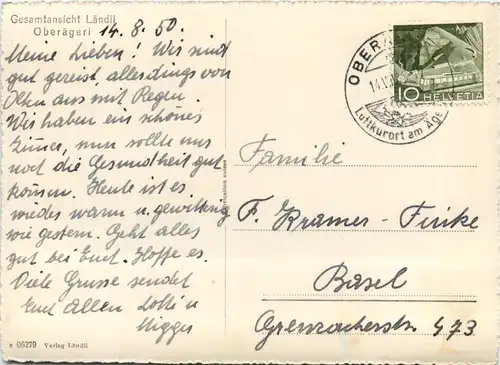 Gesamtansicht Ländli
Oberägeri 14.8.50.
Meine Lieben! Wir sind
gut gereist, allerdings von
Olten aus mit Regen.
Wir haben ein schönes
Zimer, nun sollte uns
noch die Gesundheit gut
komen. Heute ist es
wieder warm u. gewittrig
wie gestern. Geht alles
gut bei Euch. Hoffe es.
Viele Grüsse sendet
Euch allen Lotti u
Migger
* 06279 Verlag Ländli
OBER
Luftkurort am
10 HELVETIA
Familie
F. Kramer-Finke
Basel
Grenzacherstr. 473